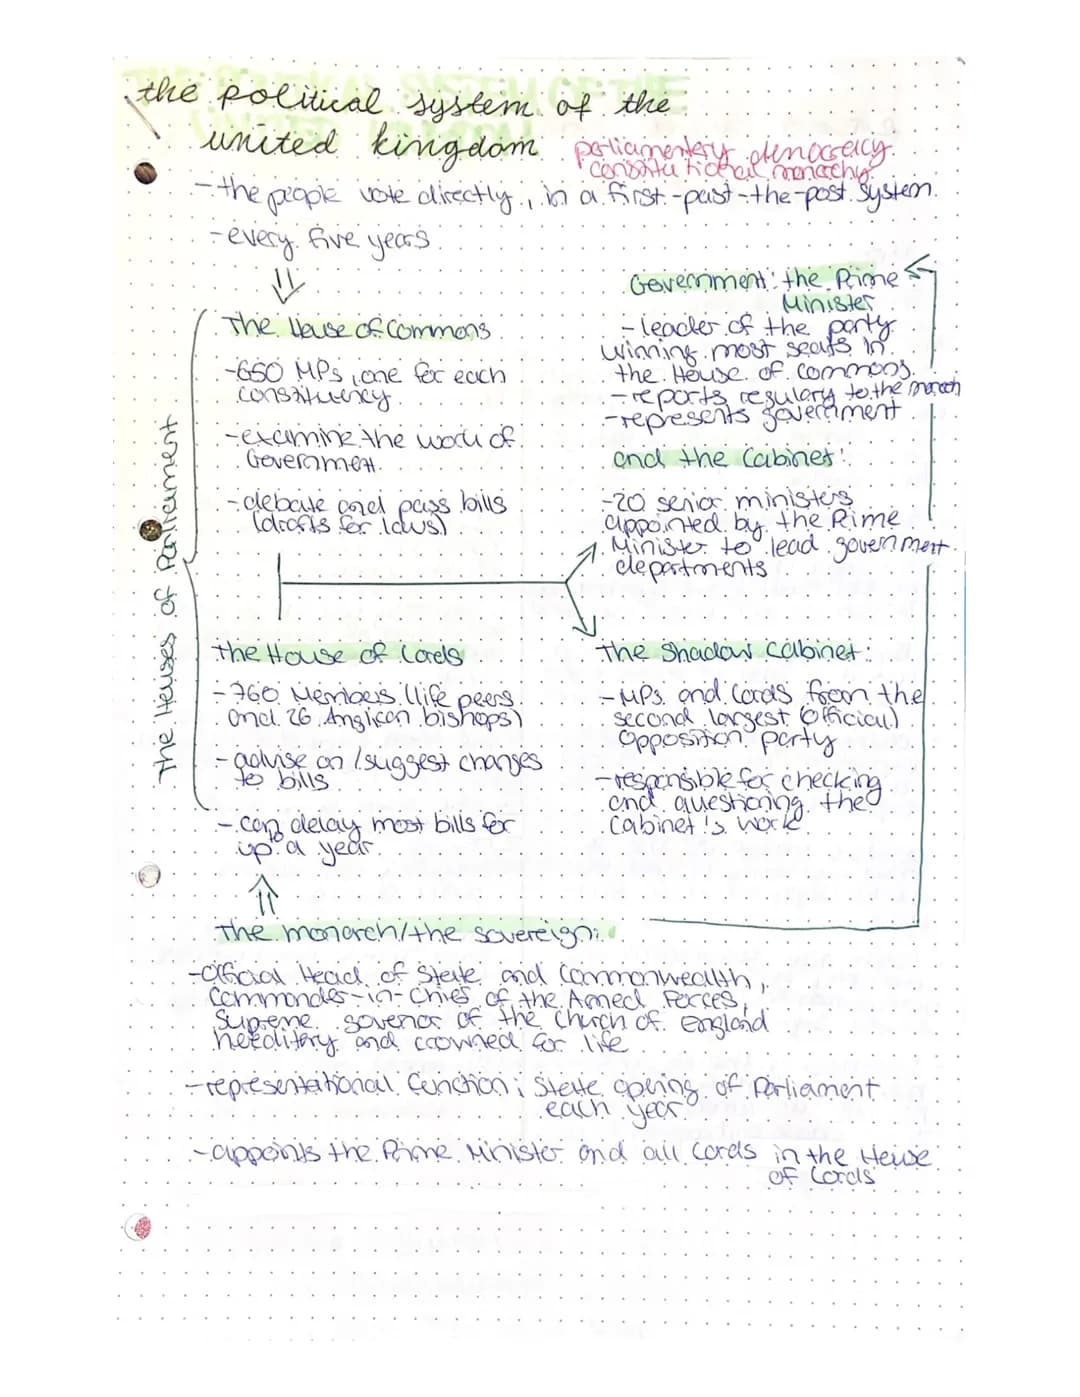 the political system of the
united kingdom
parliamentery democracy
constitutional monachy
- the people vote directly, in a first-past-the-post system
- every five years
The House of Commons
- 650 MPs, one for each
constituency
- examine the work of
Government
- debate and pass bills
(drafts for laws)
Government: the Prime
Minister
- leader of the party
winning most seats in
the House of commons.
- reports regulary to the monach
- represents government
and the Cabinet:
- 20 senior ministers
appointed by the Prime
Minister to lead government
departments
The Houses of Parliament
the House of Lords
- 760 Members (life peers
and 26 Anglican bishops)
- advise on / suggest changes
to bills
- can delay most bills for
up a year
the Shadow Cabinet:
- MPs and Lords from the
second largest (official)
opposition party
- responsible for checking
and questioning the
Cabinet's work
The monarch/the sovereign:
- official Head of State and Commonwealth,
Commander-in-Chief of the Armed Forces,
Supreme govenor of the Church of England
hereditery and crowned for life
- representational function; State opening of Parliament
each year
- appoints the Prime Minister and all Lords in the House
of Lords